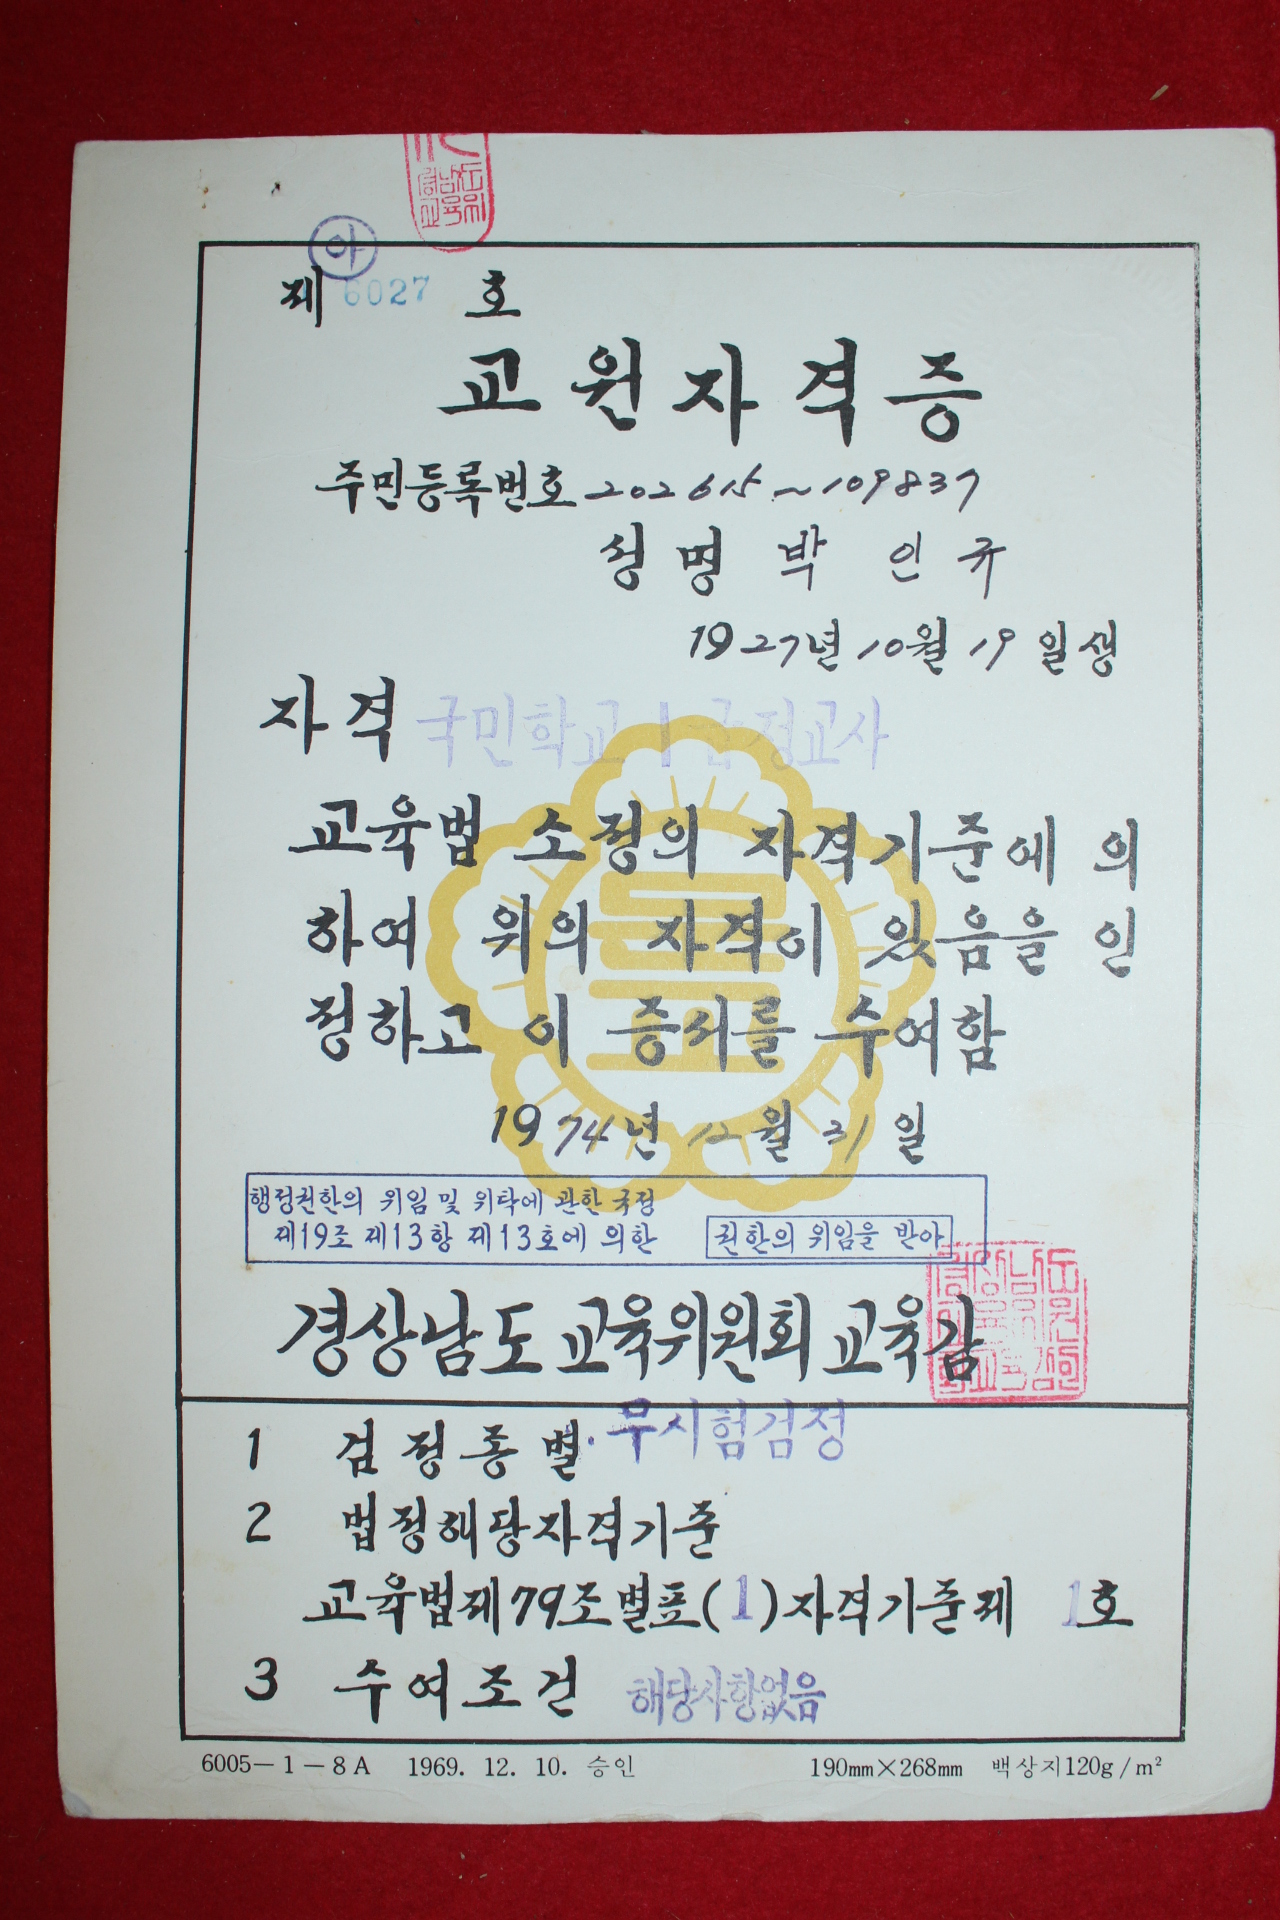 아
제 6027 호
교원자격증
주민등록번호 202615~109837
성명 박 인 규
1927년 10월 19일생
자격 국민학교 1급정교사
교육법 소정의 자격기준에 의
하여 위의 자격이 있음을 인
정하고 이 증서를 수여함
1974년 12월 31일
행정권한의 위임 및 위탁에 관한 국정
제19조 제13항 제13호에 의한 권한의 위임을 받아
경상남도 교육위원회 교육감
1 검정종별 . 무시험검정
2 법정해당자격기준
교육법제79조별표(1)자격기준제 1호
3 수여조건 해당사항없음
6005-1-8A 1969. 12. 10. 승인 190mm×268mm 백상지120g/m²